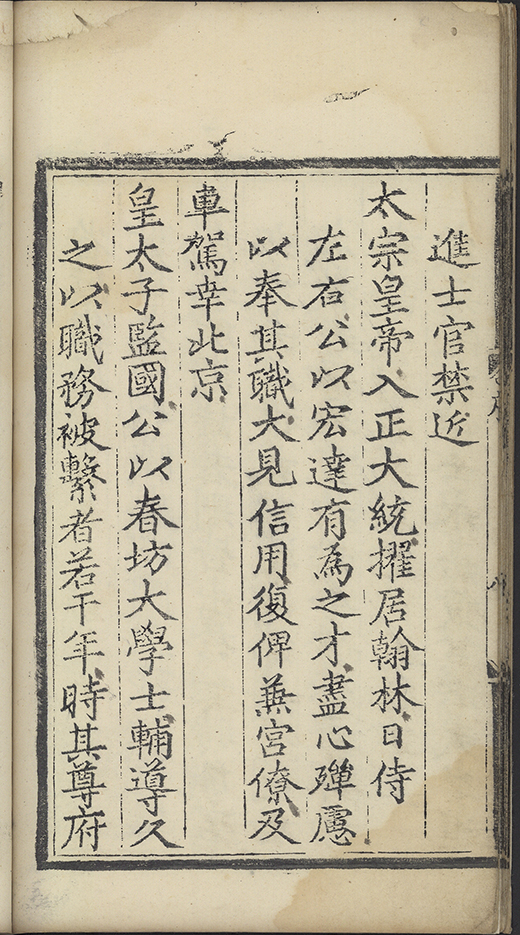 進士官禁近
太宗皇帝入正大統擢居翰林日侍
左右公以宏達有為之才盡心殫慮
以奉其職大見信用復俾兼宮僚及
車駕幸北京
皇太子監國公以春坊大學士輔導久
之以職務被繫者若干年時其尊府